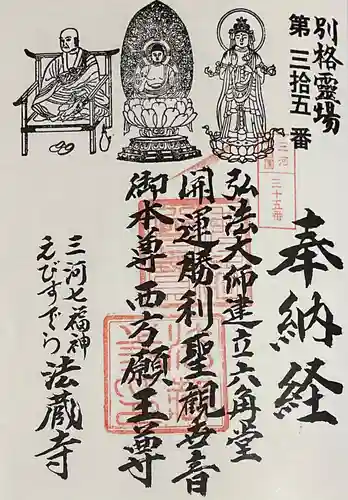 別格霊場
第三拾五番
三河
三十五番
奉納経
弘法大师建立六角堂
開運勝利聖観吾音
御本尊西方願王尊
三河七福神
えびすでら法蔵寺